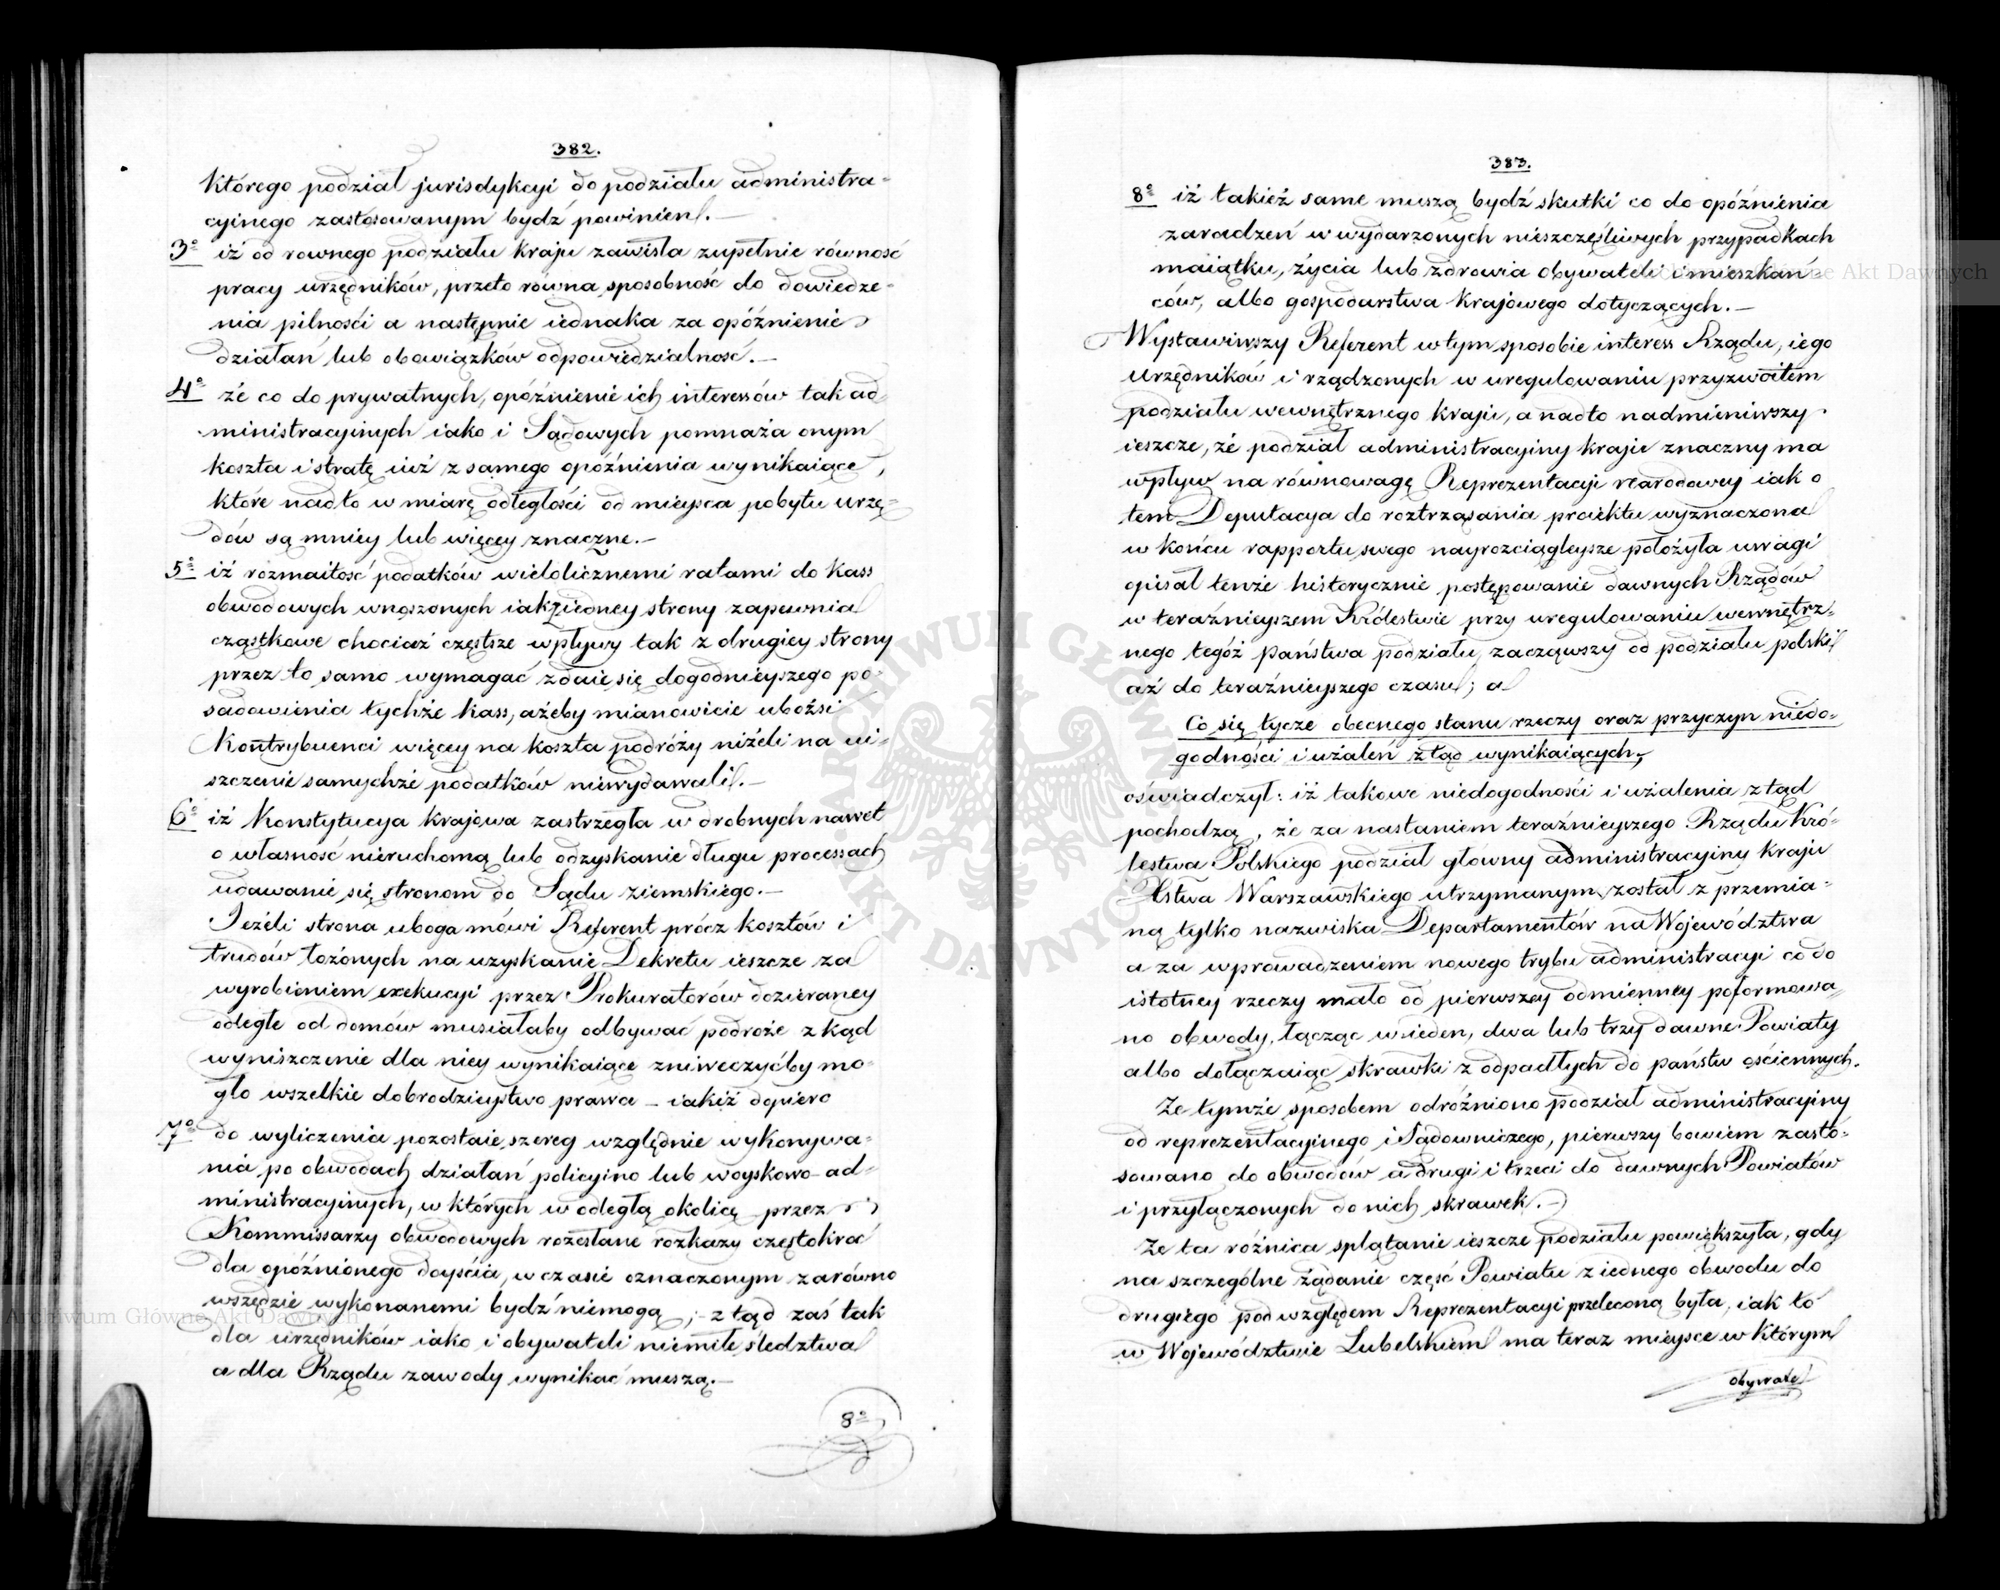 382.
którego podział jurisdykcyi do podziału administra-
cyinego zastosowanym bydź powinien.—
3º iż od rownego podziału kraju zawisła zupełnie równość
pracy urzędników, przeto równa sposobność do dowiedze-
nia pilności a następnie iednaka za opóźnienie
działań lub obowiązków odpowiedzialność.—
4º że co do prywatnych, opóźnienie ich interessów tak ad-
ministracyinych iako i Sądowych pomnaża onym
koszta i stratę iuż z samego opóźnienia wynikaiące,
które nadto w miarę odległości od mieysca pobytu urzę-
dów są mniey lub więcey znaczne.—
5º iż rozmaitość podatków wielolicznemi ratami do kass
obwodowych wnoszonych iak z iedney strony zapewnia
cząstkowe chociaż częstsze wpływy tak z drugiey strony
przez to samo wymagać zdaie się dogodnieyszego po-
sadowienia tychże kass, ażeby mianowicie ubożsi
Kontrybuenci więcey na koszta podróży niżeli na ui-
szczenie samychże podatków niewydawali.—
6º iż Konstytucya krajowa zastrzegła w drobnych nawet
o własność nieruchomą lub odzyskanie długu processach
udawanie się stronom do Sądu ziemskiego.—
Jeżeli strona uboga mówi Referent prócz kosztów i
trudów łożonych na uzyskanie Dekretu ieszcze za
wyrobieniem exekucyi przez Prokuratorów dozieraney
odległe od domów musiałaby odbywać podroże z kąd
wyniszczenie dla niey wynikaiące zniweczyćby mo-
gło wszelkie dobrodzieystwo prawa — iakiż dopiero
7º do wyliczenia pozostaie szereg względnie wykonywa-
nia po obwodach działań policyino lub woyskowo ad-
ministracyinych, w których w odległą okolicę przez
Kommissarzy obwodowych rozesłane rozkazy częstokroć
dla opóźnionego doyścia, w czasie oznaczonym zarówno
wszędzie wykonanemi bydź niemogą; z tąd zaś tak
dla urzędników iako i obywateli niemiłe śledztwa
a dla Rządu zawody wynikać muszą.—
8º
383.
8º iż takież same muszą bydź skutki co do opóźnienia
zaradzeń w wydarzonych nieszczęśliwych przypadkach
maiątku, życia lub zdrowia obywateli i mieszkań-
ców, albo gospodarstwa krajowego dotyczących.—
Wystawiwszy Referent w tym sposobie interess Rządu, iego
Urzędników i rządzonych w uregulowaniu przyzwoitem
podziału wewnętrznego kraju, a nadto nadmieniwszy
ieszcze, że podział administracyiny kraju znaczny ma
wpływ na równowagę Reprezentacji Narodowey iak o
tem Deputacya do roztrząsania proiektu wyznaczona
w końcu rapportu swego nayrozciągleysze położyła uwagi
opisał tenże historycznie postępowanie dawnych Rządów
w teraźnieyszem Królestwie przy uregulowaniu wewnętrz-
nego tegóż państwa podziału, zacząwszy od podziału polski
aż do teraźnieyszego czasu; a
Co się tycze obecnego stanu rzeczy oraz przyczyn niedo-
godności i użaleń z tąd wynikaiących,
oświadczył: iż takowe niedogodności i użalenia z tąd
pochodzą, że za nastaniem teraźnieyszego Rządu Kró-
lestwa Polskiego podział główny administracyiny kraju
Xstwa Warszawskiego utrzymanym został z przemia-
ną tylko nazwiska Departamentów na Województwa
a za wprowadzeniem nowego trybu administracyi co do
istotney rzeczy mało od pierwszey odmienney poformowa-
no obwody, łącząc w ieden, dwa lub trzy dawne Powiaty
albo dołączaiąc skrawki z odpadłych do państw ościennych.
Że tymże sposobem odróżniono podział administracyiny
od reprezentacyinego i Sądowniczego, pierwszy bowiem zasto-
sowano do obwodów a drugi i trzeci do dawnych Powiatów
i przyłączonych do nich skrawek.—
Że ta różnica splątanie ieszcze podziału powiększyła, gdy
na szczególne żądanie część Powiatu z iednego obwodu do
drugiego pod względem Reprezentacyi przeleconą była, iak to
w Województwie Lubelskiem ma teraz mieysce w którym
obywatel
ARCHIWUM GŁÓWNE AKT DAWNYCH
Archiwum Główne Akt Dawnych
Archiwum Główne Akt Dawnych